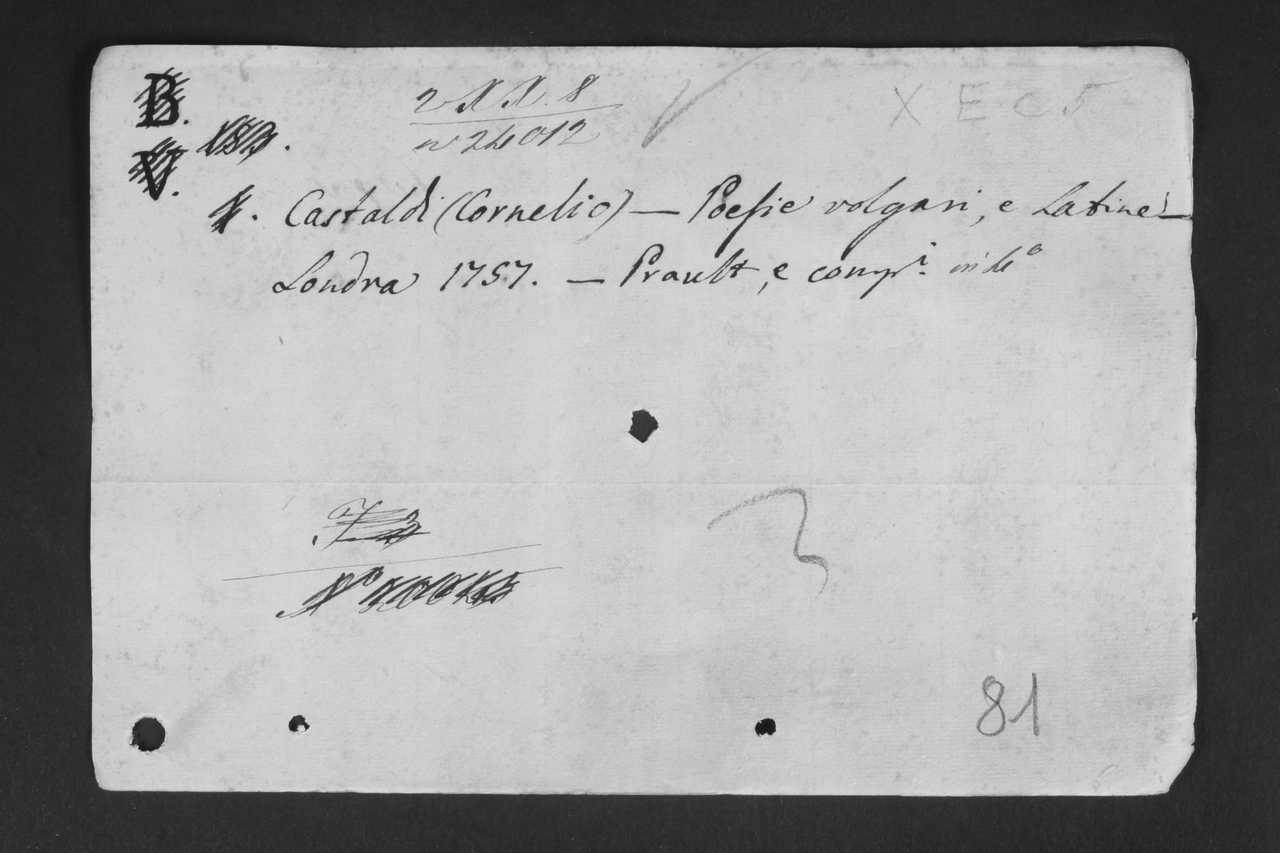 B.
2 XX. 8
X E C 5
n 24012
V.
Castaldi (Cornelio) — Poesie volgari, e Latine —
Londra 1757. — Prault, e comp.i in 4o
3
81